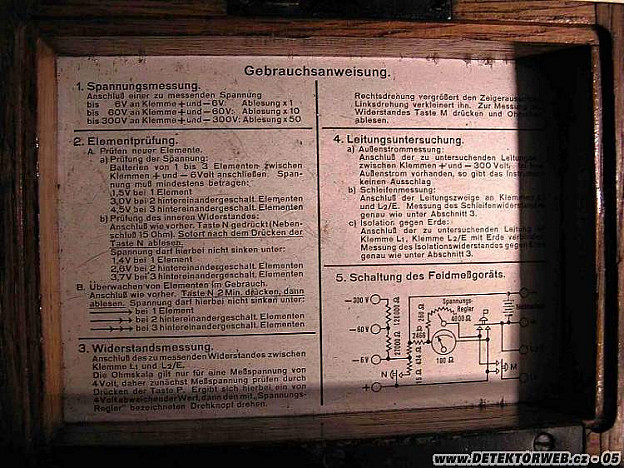 Gebrauchsanweisung.
1. Spannungsmessung.
Anschluß einer zu messenden Spannung
bis 6V an Klemme + und – 6V: Ablesung x 1
bis 60V an Klemme + und – 60V: Ablesung x 10
bis 300V an Klemme + und – 300V: Ablesung x 50
2. Elementprüfung.
A. Prüfen neuer Elemente.
a) Prüfung der Spannung:
Batterien von 1 bis 3 Elementen zwischen
Klemmen + und – 6Volt anschließen. Span-
nung muß mindestens betragen:
1,5V bei 1 Element
3,0V bei 2 hintereinandergeschalt. Elementen
4,5V bei 3 hintereinandergeschalt. Elementen
b) Prüfung des inneren Widerstandes:
Anschluß wie vorher. Taste N gedrückt (Neben-
schluß 15 Ohm). Sofort nach dem Drücken der
Taste N ablesen.
Spannung darf hierbei nicht sinken unter:
1,4V bei 1 Element
2,6V bei 2 hintereinandergeschalt. Elementen
3,7V bei 3 hintereinandergeschalt. Elementen
B. Überwachen von Elementen im Gebrauch.
Anschluß wie vorher. Taste N 2 Min. drücken, dann
ablesen. Spannung darf hierbei nicht sinken unter:
bei 1 Element
bei 2 hintereinandergeschalt. Elementen
bei 3 hintereinandergeschalt. Elementen
3. Widerstandsmessung.
Anschluß des zu messenden Widerstandes zwischen
Klemme L1 und L2/E.
Die Ohmskala gilt nur für eine Meßspannung von
4 Volt, daher zunächst Messpannung prüfen durch
Drücken der Taste P. Ergibt sich hierbei ein von
4 Volt abweichender Wert, dann den mit „Spannungs-
Regler" bezeichneten Drehknopf drehen.
Rechtsdrehung vergrößert den Zeigeraus
Linksdrehung verkleinert ihn. Zur Messung
Widerstandes Taste M drücken und Ohm
ablesen.
4. Leitungsuntersuchung.
a) Außenstrommessung:
Anschluß der zu untersuchenden Leitung
zwischen Klemmen + und – 300 Volt.
Außenstrom vorhanden, so gibt das Instrument
keinen Ausschlag
b) Schleifenmessung:
Anschluß der Leitungszweige an Klemmen L1
und L2/E. Messung des Schleifenwiderstandes
genau wie unter Abschnitt 3.
c) Isolation gegen Erde:
Anschluß der zu untersuchenden Leitung
Klemme L1, Klemme L2/E mit Erde verbinden.
Messung des Isolationswiderstandes gegen
genau wie unter Abschnitt 3.
5. Schaltung des Feldmeßgeräts.
Spannungs-
Regler
– 300V
– 60V
– 6V
+
N
P
M
4000 Ω
100 Ω
15 Ω
www.DETEKTORWEB.cz - 05